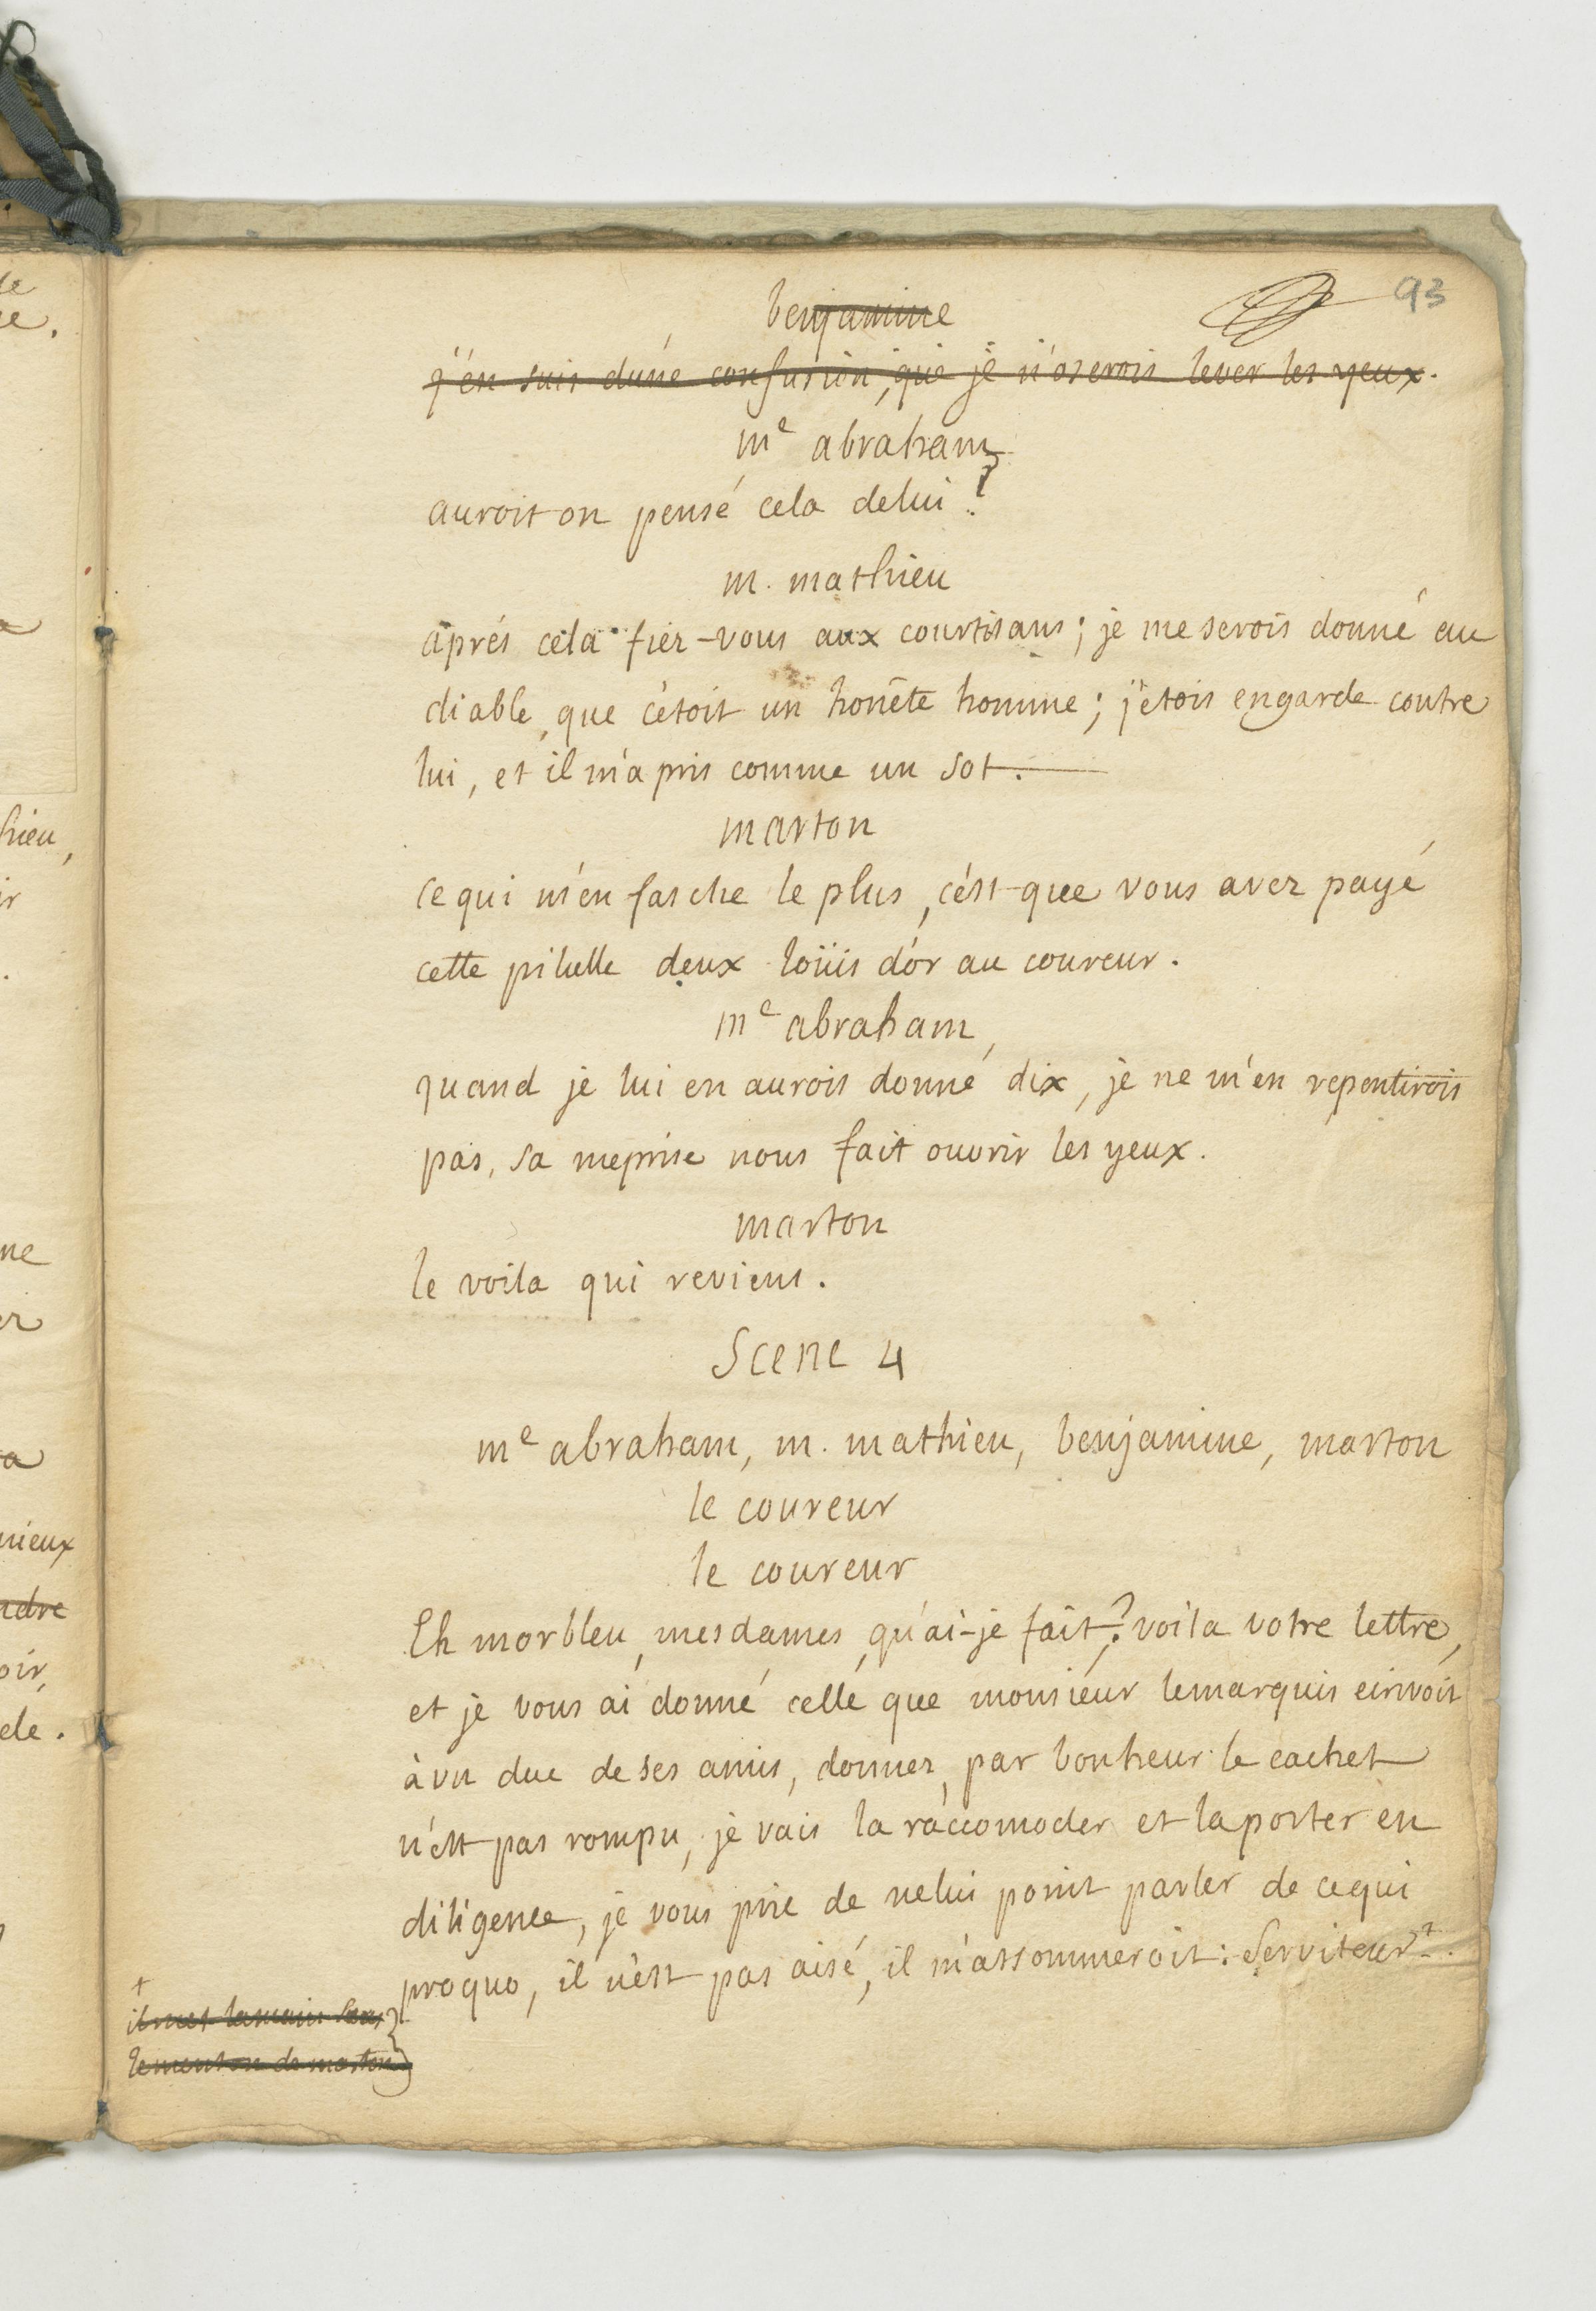 93
benjamine
j'en suis d'une confusion, que je n'oserois lever les yeux.
me abraham
auroit on pensé cela delui?
m. mathieu
aprés cela fiez-vous aux courtisans; je me serois donné au
diable, que c'étoit un honéte homme; j'étois engarde contre
lui, et il m'a pris comme un sot.
marton
ce qui m'en fasche le plus, c'est que vous avez payé
cette pilulle deux loüis d'or au coureur.
me abraham,
quand je lui en aurois donné dix, je ne m'en repentirois
pas, sa meprise nous fait ouvrir les yeux.
marton
le voila qui reviens.
Scene 4
me abraham, m. mathieu, benjamine, marton
le coureur
le coureur
Eh morbleu, mesdames, qu'ai-je fait? voila votre lettre,
et je vous ai donné celle que monsieur lemarquis ecrivoit
à vn duc de ses amis, donnez, par bonheur le cachet
n'est pas rompu, je vais la raccomoder et laporter en
diligence, je vous prie de nelui point parler de cequi
proquo, il n'est pas aisé, il m'assommeroit: Serviteur+.
+
il met lamain sous
lementon de marton
hieu,
ir
ne
er
a
mieux
ndre
oir,
ele.